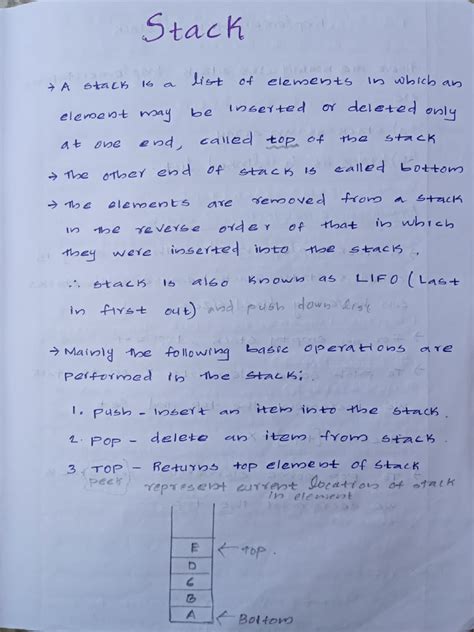 Stack
→ A stack is a list of elements in which an
element may be inserted or deleted only
at one end, called top of the stack
→ The other end of stack is called bottom
→ The elements are removed from a stack
in the reverse order of that in which
they were inserted into the stack.
∴ stack is also known as LIFO (Last
in first out) and push down list
→ Mainly the following basic operations are
performed in the stack:
1. push - insert an item into the stack.
2. pop - delete an item from stack.
3. (TOP) - Returns top element of stack
(peek) represent current location of stack
in element
E ← top.
D
C
B
A ← Bottom